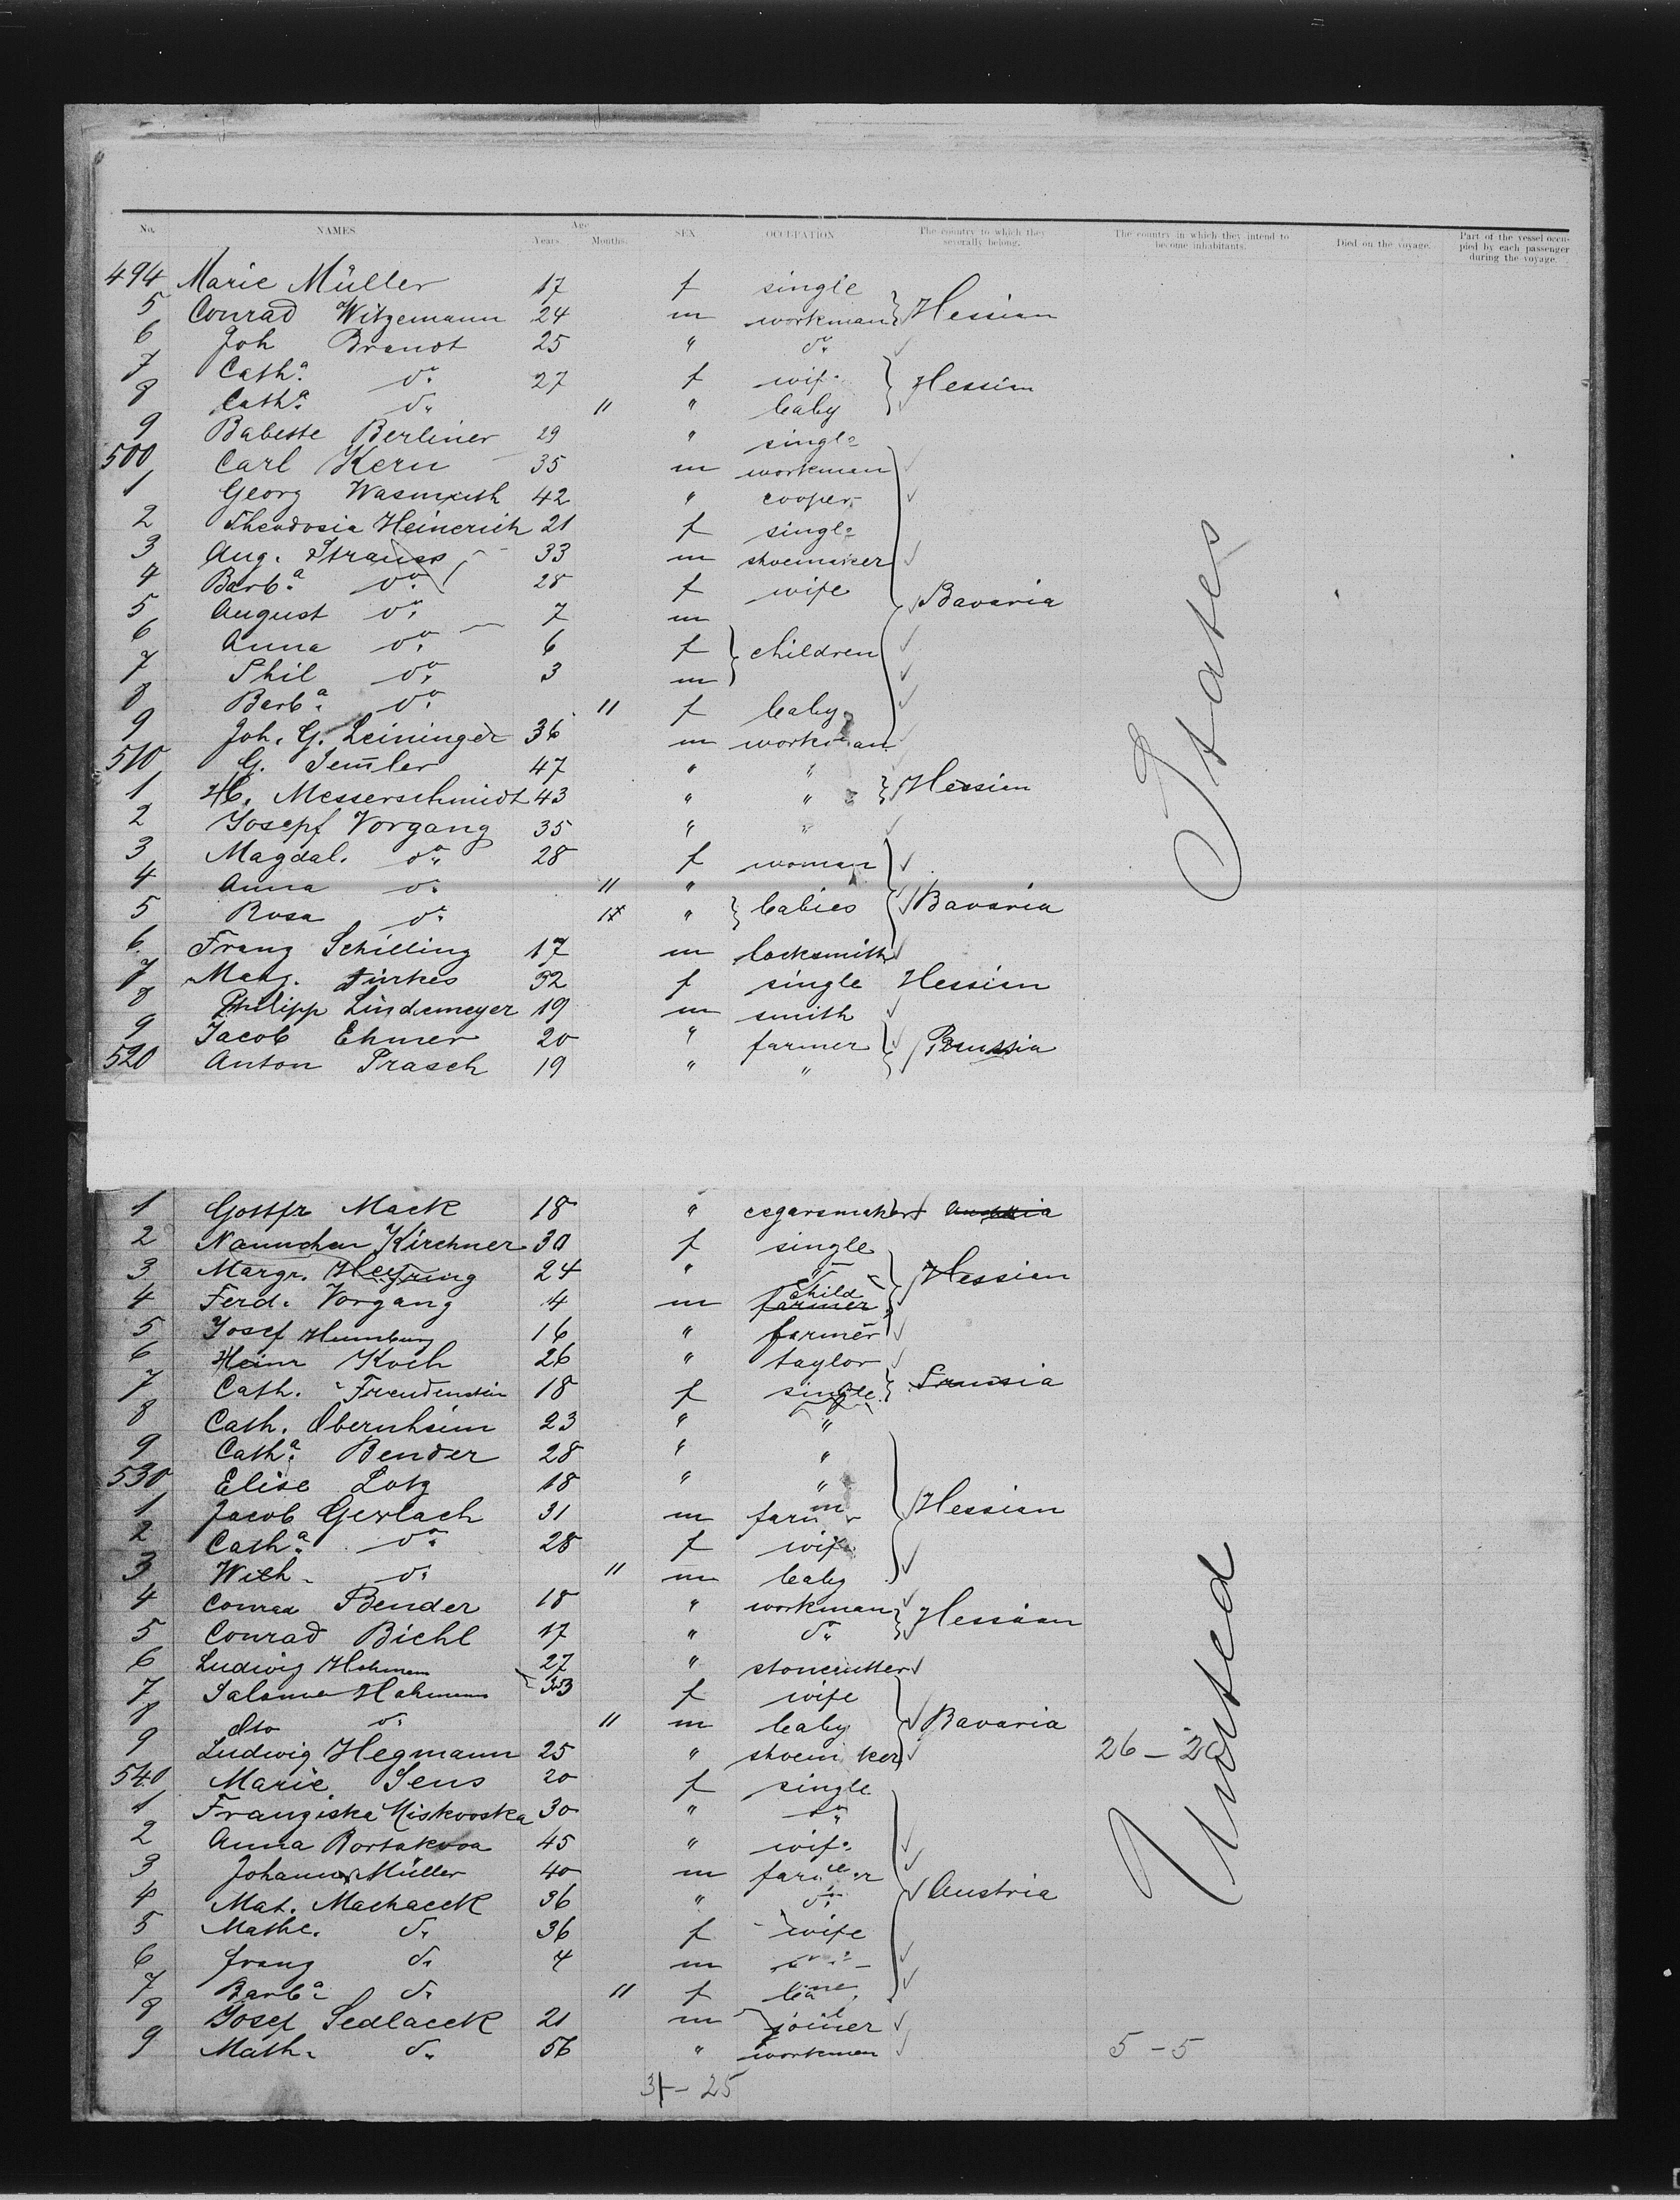 No. NAMES Age Years. Months. SEX OCCUPATION The country to which they severally belong. The country in which they intend to become inhabitants. Died on the voyage. Part of the vessel occupied by each passenger during the voyage.
494 Marie Müller 17 f single
5 Conrad Witzemann 24 m workman Hessian
6 Joh Brandt 25 " do.
7 Catha. do. 27 f wife Hessian
8 Catha. do. 11 " baby
9 Babette Berliner 29 " single
500 Carl Kern 35 m workman
1 Georg Wasmuth 42 " cooper
2 Theodosia Heinerich 21 f single
3 Aug. Strauss 33 m shoemaker
4 Barba. do. 28 f wife Bavaria
5 August do. 7 m
6 Anna do. 6 f children
7 Phil do. 3 m
8 Barba. do. 11 f baby
9 Joh. G. Leininger 36 m workman
510 G. Sem̄ler 47 " "
1 Hc. Messerschmidt 43 " " Hessian
2 Josepf Vorgang 35 " "
3 Magdal. do. 28 f woman
4 Anna do. 11 "
5 Rosa do. " babies Bavaria
6 Franz Schilling 17 m locksmith
7 Marg. 32 f single Hessian
8 Philipp Lindemeyer 19 m smith
9 Jacob Ehmer 20 " farmer Prussia
520 Anton Prasch 19 " "
States
1 Gottfr Mack 18 " cegarsmaker
2 Nannchen Kirchner 30 f single
3 Margr. 24 " Hessian
4 Ferd. Vorgang 4 m child farmer
5 Josef Humburg 16 " farmer
6 Heinr Koch 26 " taylor
7 Cath. 18 f single Prussia
8 Cath. Obernheim 23 " "
9 Catha. Bender 28 " "
530 Elise Lotz 18 " "
1 Jacob Gerlach 31 m farmer Hessian
2 Catha. do. 28 f wife
3 Wilh. do. 11 m baby
4 Conrad Bender 18 " workman Hessian
5 Conrad Biehl 17 " do.
6 Ludwig Hahmann 27 " stonecutter
7 Salome Hahmann 33 f wife
8 Otto do. 11 m baby Bavaria
9 Ludwig Hegmann 25 " shoemaker
26 -
540 Marie Sens 20 f single
1 Franziska Miskovska 30 " do.
2 Anna 45 " wife
3 Johann Müller 40 m farmer
4 Mat. Machacek 36 " do. Austria
5 Mathe. do. 36 f wife
6 franz do. 4 m
7 Barba. do. 11 f
8 Josef Sedlacek 21 m joiner
9 Math. do. 56 " workman
5 - 5
United
31 - 25